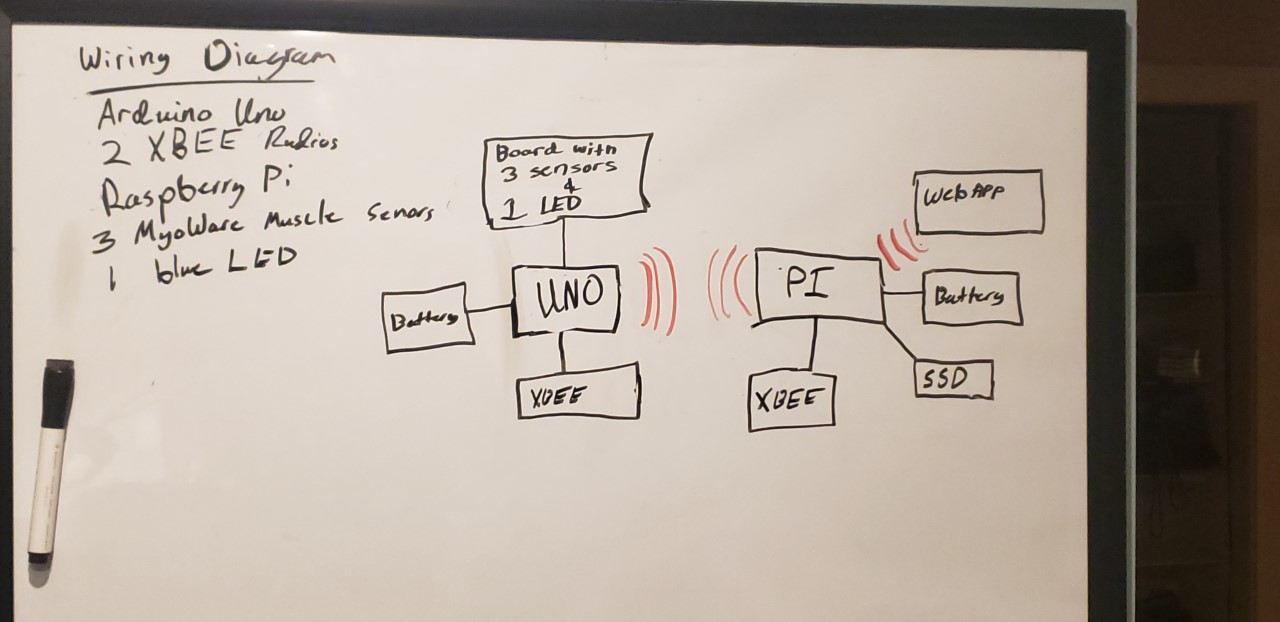 Wiring Diagram
Arduino Uno
2 XBEE Radios
Raspberry Pi
3 MyoWare Muscle Senors
1 blue LED
Board with
3 sensors
&
1 LED
UNO
Battery
XBEE
PI
WebAPP
Battery
SSD
XBEE